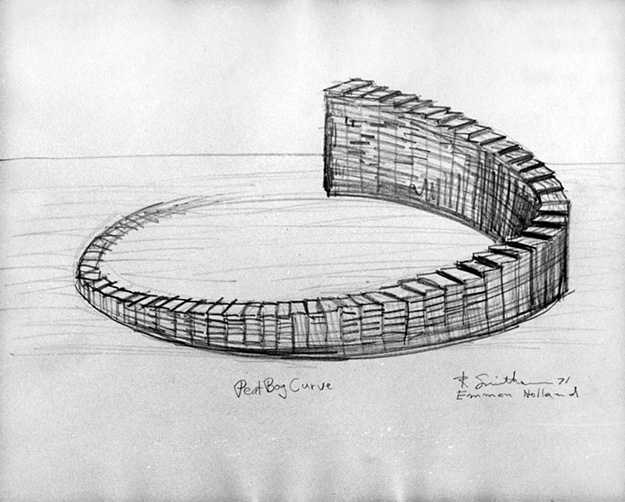 Peat Bog Curve
R. Smithson 71
Emmen Holland